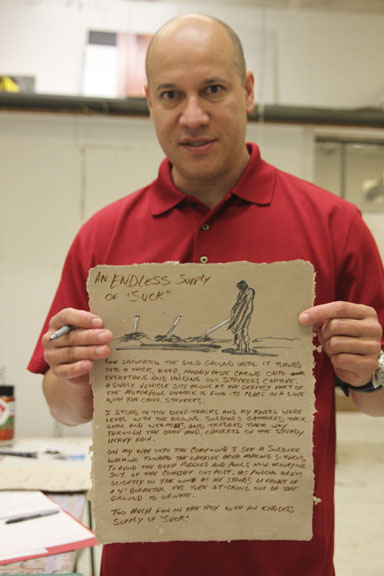 AN ENDLESS SUPPLY
OF "SUCK"
RAIN SATURATES THE SOLID GROUND UNTIL IT TURNED
INTO A THICK, DEEP, MUDDY PASTE CAKING ONTO
EVERYTHING AND HOLDING OUR STRYKERS CAPTIVE.
A SINGLE VEHICLE SITS ALONE AT THE DEEPEST PART OF
THE MOTORPOOL UNABLE TO FIND ITS PLACE IN A LINE
WITH THE OTHER STRYKERS.
I STOOD IN THE DEEP TRACKS AND MY KNEES WERE
LEVEL WITH THE GROUND. SOLDIER'S GATHERED THEIR
GEAR AND WEAPONS AND TRUDGED THEIR WAY
THROUGH THE DEEP MUD, CARELESS OF THE STEADY
HEAVY RAIN.
ON MY WAY INTO THE COMPOUND I SEE A SOLDIER
WALKING TOWARD THE LATRINE AREA MAKING S-TURNS
TO AVOID THE DEEP PUDDLES AND POOLS NOW OCCUPYING
30% OF THE COMBAT OUTPOST. HIS PONCHO BLOWS
SLIGHTLY IN THE WIND AS HE STANDS IN FRONT OF
A 4" DIAMETER PVC TUBE STICKING OUT OF THE
GROUND TO URINATE.
TOO MUCH FUN IN THE WITH AN ENDLESS
SUPPLY OF "SUCK."